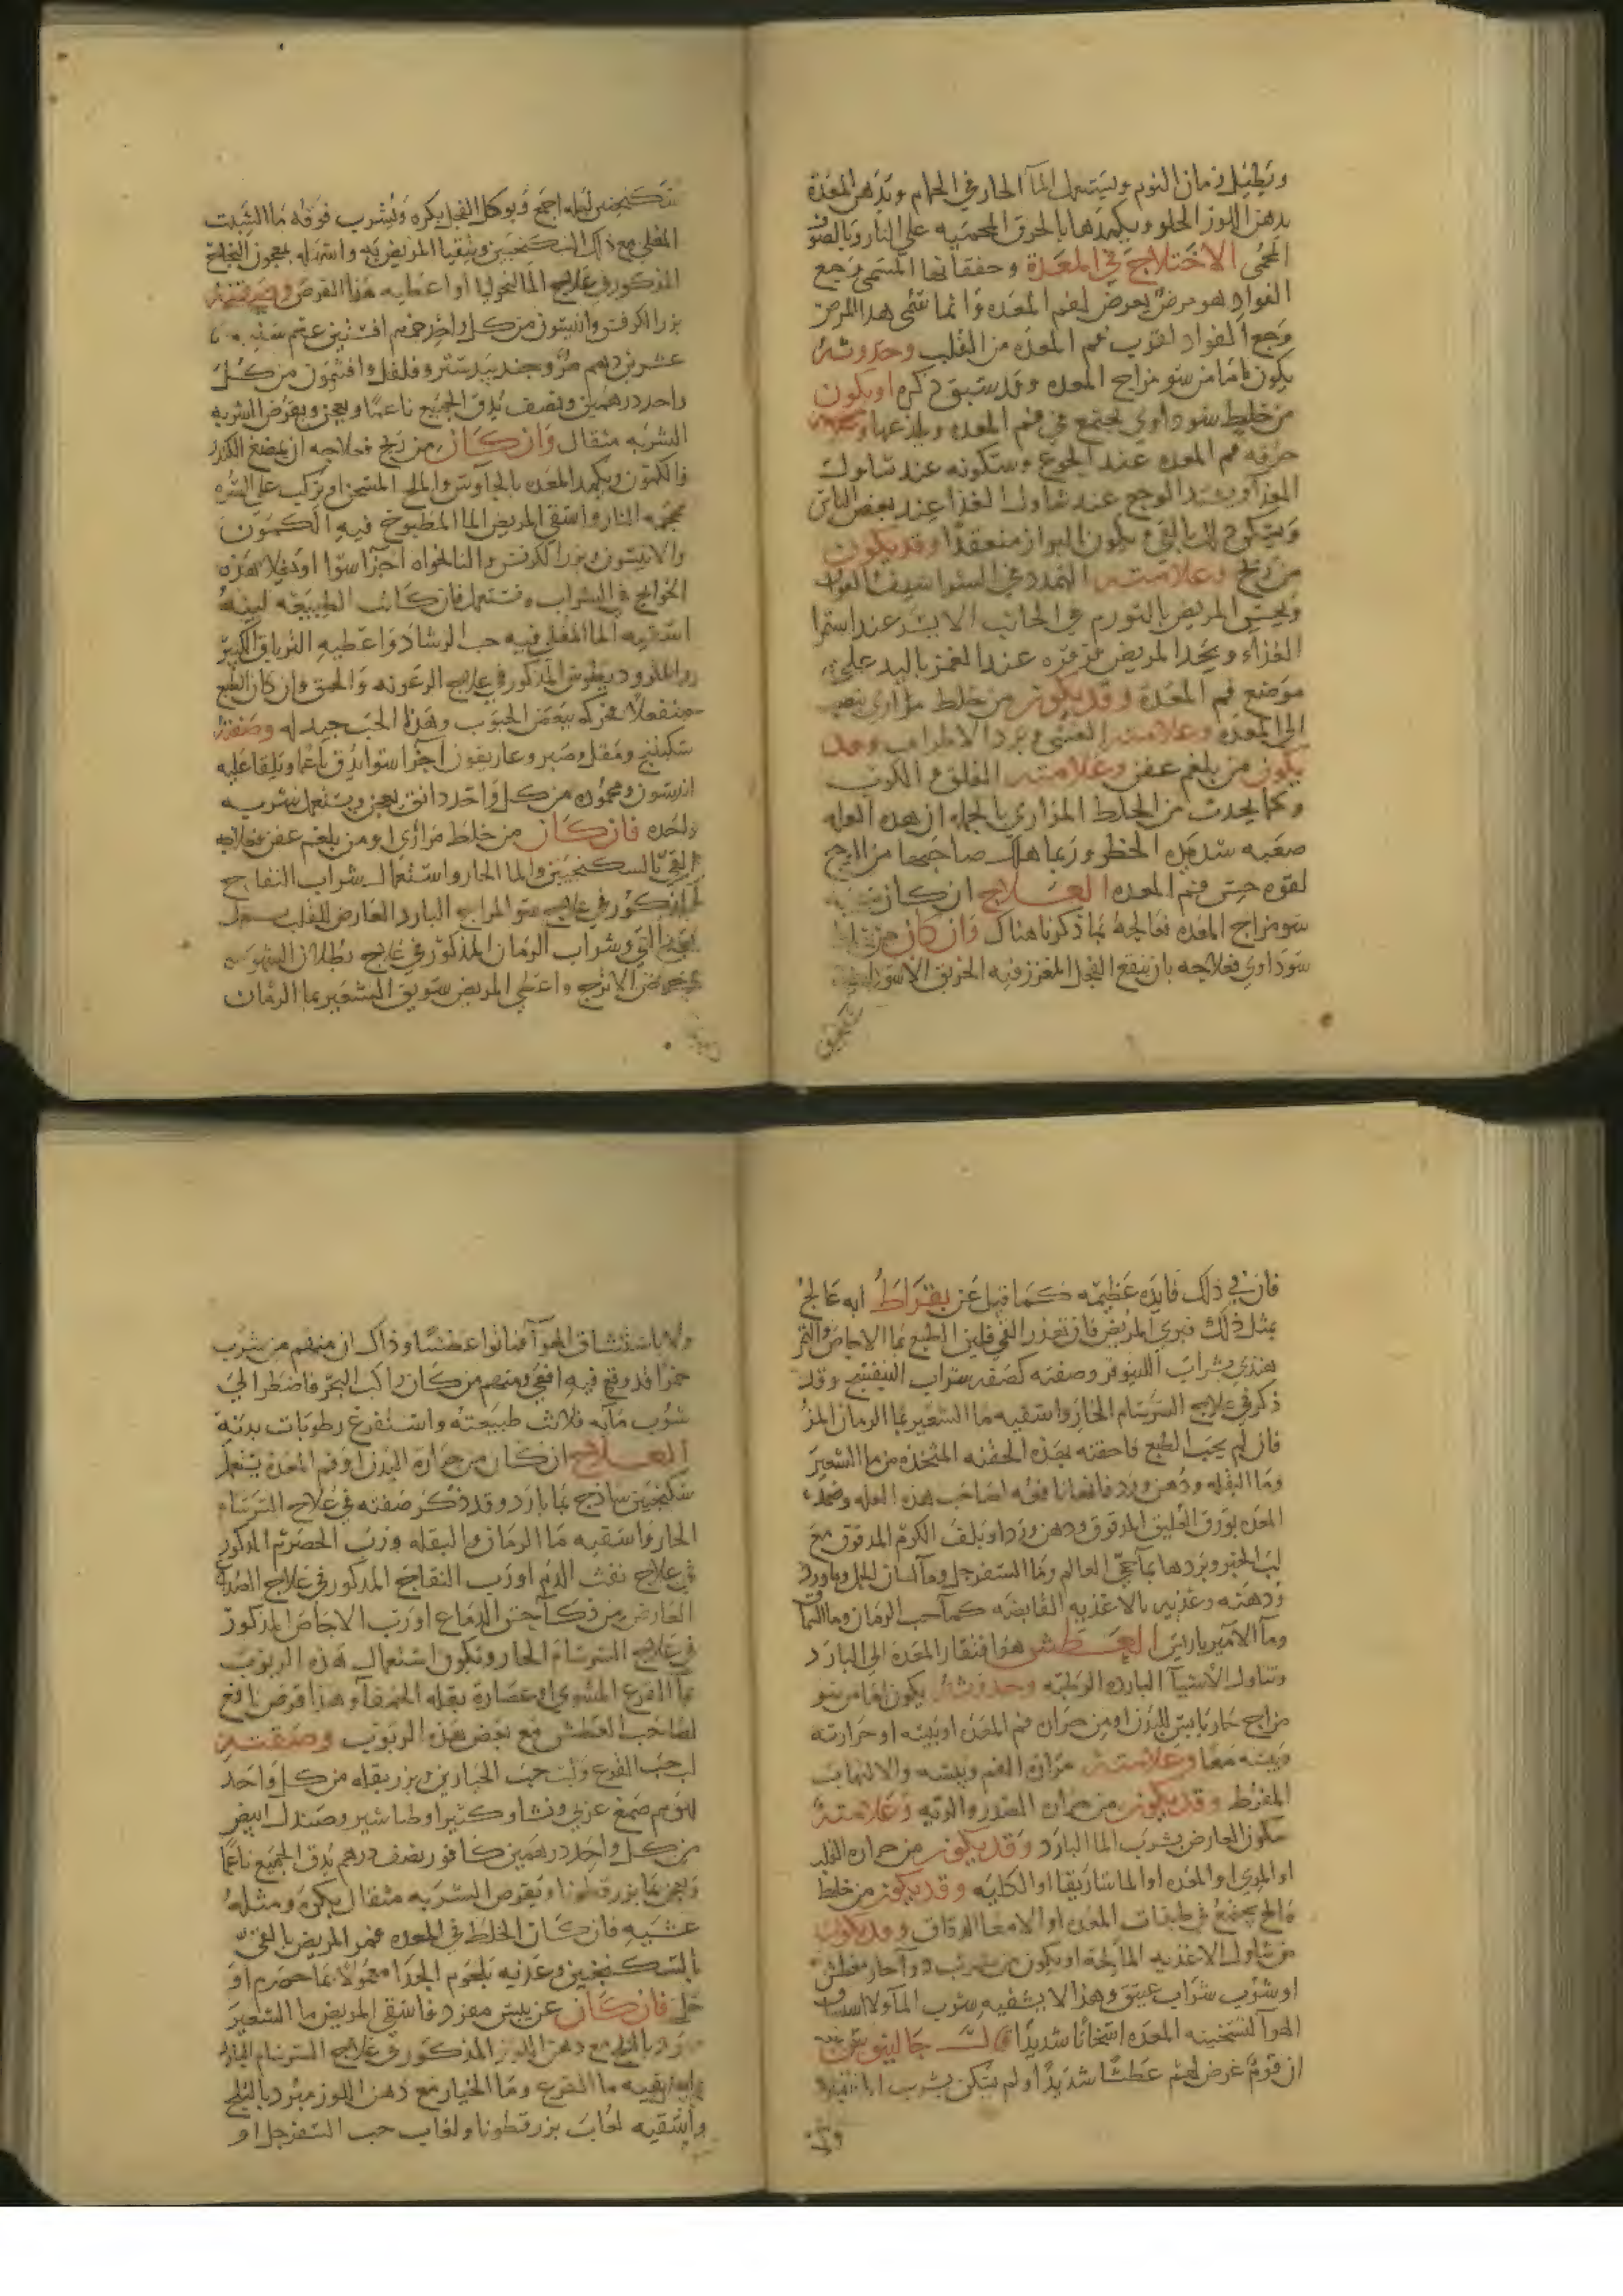 ويطيل زمان النوم ويستعمل المآ الحار في الحمام ويدهن المعدة
بدهن اللوز الحلو ويكمدها بالخرق المحميه على النار وبالصوف
المحمى الاختلاج في المعدة وخفقانها المسمى وجع
الفواد هو مرض يعرض لفم المعده وانما سمى هدا المرض
وجع الفواد لقرب فم المعده من القلب وحدوثه
يكون اما من سو مزاج المعده وقد سبق ذكره او يكون
من خليط سوداوي يجتمع في فم المعده ويلذعها
حرقه فم المعده عند الجوع وسكونه عند تناول
الغذآ ويشتد الوجع عند تناول الغذا عند بعض الناس
ويسكن ذلك بالقي ويكون البراز منعقدًا وقد يكون
من ريح وعلامته التمدد في الشراسيف
ويحس المريض بالتورم في الجانب الايسر عند استمرا
الغذاء ويجد المريض قرقره عند الغمز باليد على
موضع فم المعدة وقد يكون من خلط مراري ينصب
الى المعده وعلامته الغشي وبرد الاطراف وقد
يكون من بلغم عفن وعلامته القلق والكرب
وكما يحدث من الخلط المراري بالجمله ان هده العله
صعبه شديده الخطر وربما هلك صاحبها من الوجع
لقوه حس فم المعده العلاج ان كان
سو مزاج المعده فعالجه بما ذكرنا هناك وان كان من خلط
سوداوي فعلاجه بان ينقع الفجل المغرز فيه الخربق الاسود
سكنجبين ليله اجمع ويوكل الفجل بكره ويشرب فوقه ما الشبت
المغلي مع ذلك السكنجبين ويتقيا المريض به واسهله بمعجون النجاح
المذكور في علاج المالنخوليا او اعطيه هذا القرص وصفته
بزر الكرفس وانيسون من كل واحد افسنتين
عشرين درهم مر وجندبيدستر وفلفل وافتيمون من كل
واحد درهمين ونصف يدق الجميع ناعمًا ويعجن ويقرص الشربه
الشربه مثقال وان كان من ريح فعلاجه ان يمضغ الكندر
والكمون ويكمد المعده بالجاوش والملح المسخن او تركب على السره
محجمه النار واسقي المريض الما المطبوخ فيه الكمون
والانيسون وبزر الكرفس والنانخواه اجزآ سوا او هذه
الحوايج في الشراب وتستعمل فان كانت الطبيعه لينه
اسقيه الما المغلي فيه حب الرشاد واعطيه الترياق الكبير
المذكور في علاج الرعونه والحمق وان كان الطبع
فحركه ببعض الحبوب وهذا الحب جيد له وصفته
سكبينج ومقل وصبر وغاريقون اجزا سوا يدق ناعما ويلقا عليه
انيسون ومحموده من كل واحد دانق يعجن ويستعمل شربه
واحده فان كان من خلط مراري او من بلغم عفن فعلاجه
القي بالسكنجبين والما الحار واستعمال شراب التفاح
المذكور في علاج سو المزاج البارد العارض للقلب
وشراب الرمان المذكور في علاج بطلان الشهوه
حماض الاترج واعطي المريض سويق الشعير بما الرمان
فان في ذلك فايده عظيمه كما قيل عن بقراط انه عالج
بمثل ذلك فبري المريض فان تعذر القي فلين الطبع بما الاجاص والتمر
هندي وشراب اللينوفر وصفته كصفه شراب البنفسج وقد
ذكر في علاج السرسام الحار واسقيه ما الشعير بما الرمان المز
فان لم يجب الطبع فاحقنه بهذه الحقنه المتخذه من ما الشعير
وما البقله ودهن ورد فانها نافعه لصاحب هذه العله وضمد
المعده بورق العليق المدقوق ودهن ورد او بلف الكرم المدقوق مع
لب الخبز وبردها بمآ حي العالم وما السفرجل ومآ لسان الحمل وماورد
ودهنه وغذيه بالاغذيه القابضه كمآ حب الرمان وما السماق
ومآ الامير باريس العطش هو افتقار المعده الى البارد
وتناول الاشيآ البارده الرطبه وحدوثه يكون اما من سو
مزاج حار يابس للبدن او من حراره فم المعده او يبسه او حرارته
ويبسه معا وعلامته مراره الفم ويبسه والالتهاب
المفرط وقد يكون من حراره الصدر والريه وعلامته
سكون العارض بشرب الما البارد وقد يكون من حراره القلب
او المري او المعده او الماساريقا او الكليه وقد يكون من خلط
مالح يجتمع في طبقات المعده او الامعا الدقاق وقد يكون
من تناول الاغذيه المالحة او يكون من شرب دوآ حار معطش
او شرب شراب عتيق وهذا لا يشفيه شرب المآ ولا استنشاق
الهوآ لتسخينه المعده اسخانا شديدًا قال جالينوس
ان قومٌ عرض لهم عطشًا شديدًا ولم يسكن بشرب الما
ولا باستنشاق الهوآ فماتوا عطشًا وذاك ان منهم من شرب
خمرًا قد وقع فيه افعي ومنهم من كان راكب البحر فاضطر الى
شرب مآيه فلانت طبيعته واستفرغ رطوبات بدنه
العلاج ان كان من حراره البدن او فم المعده يستعمل
سكنجبين ساذج بما بارد وقد ذكر صفته في علاج السرسام
الحار واسقيه ما الرمان وما البقله ورب الحصرم المذكور
في علاج نفث الدم او رب التفاح المذكور في علاج الصداع
العارض من ذكآ حس الدماغ او رب الاجاص المذكور
في علاج السرسام الحار وتكون استعمال هذه الربوب
بمآ القرع المشوي او عصارة بقله الحمقآ وهذا قرص نافع
لصاحب العطش مع بعض هذه الربوب وصفته
لب حب القرع ولب حب الخيار وبزر بقله من كل واحد
صمغ عربي ونشا وكثيرا وطباشير وصندل ابيض
من كل واحد درهمين كافور نصف درهم يدق الجميع ناعمًا
ويعجن بما بزرقطونا ويقرص الشربه مثقال بكره ومثله
عشيه فان كان الخلط في المعده فمر المريض بالقي
بالسكنجبين وغذيه بلحوم الجدا معمولاً بما حصرم او
خل فان كان عن يبس مفرد فاسقي المريض ما الشعير
مع دهن اللوز المذكور في علاج السرسام الحار
ما القرع وما الخيار مع دهن اللوز مبرد بالثلج
واسقيه لعاب بزرقطونا ولعاب حب السفرجل او